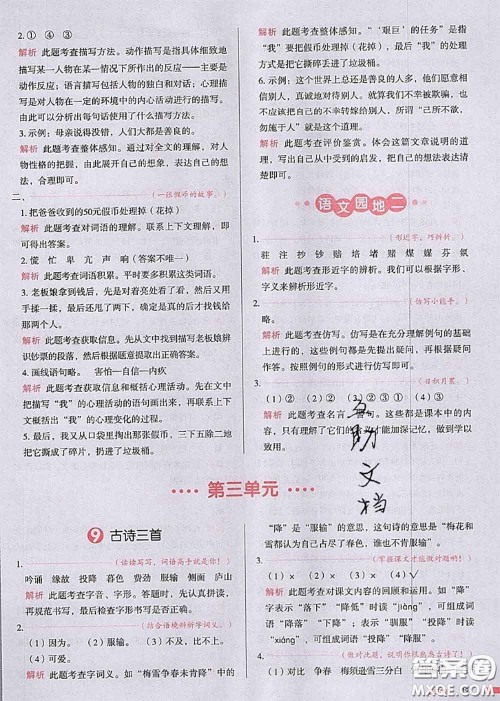 2. ① ④ ③
解析 此题考查描写方法。动作描写是指具体细致地
描写某一人物在某一情况下所作出的反应——主要
是动作反应；语言描写包括人物的独白和对话；心理描
写是对人物在一定的环境中的内心活动进行的描写。
由此可以分析出每句话使用了什么描写方法。
3. 示例：母亲说得没错，人们大都是善良的。
解析 此题考查整体感知。通过对全文的理解，对人
物性格的把握，由此展开自己的想象，表达自己的想
法，合理即可。
二、(一张假币的故事。)
1. 把爸爸收到的50元假币处理掉（花掉）
解析 此题考查对词语的理解。联系上下文理解，即可
得出答案。
2. 慌 忙 卑 亢 声 响 （答案不唯一）
解析 此题考查词语积累。平时要多积累这类词语。
3. 老板娘拿到钱后，先是对着亮处看了然后，又用
手揉一揉，最后确定是真的之后才找给
那两个人。
解析 此题考查获取信息。先从文中找到描写老板娘辨
识钞票的段落，根据原文回答问题。
4. 画线语句略。 害怕—自信—内疚
解析 此题考查获取信息和概括心理活动。先在文中
把描写“我”的心理活动的语句画出来，再联系上下文
概括出“我”的心理变化的过程。
5. “我”一转身，我又从口袋里掏出那张假币，三下五除二地
把它撕成了碎片，扔进了垃圾桶。
解析 此题考查整体感知。“‘艰巨’的任务”是指
“我”要把假币处理掉（花掉），最后“我”的决定
是把它撕碎丢进了垃圾桶。
6. 示例：这个世界上总还是善良的人多，他们愿意相
信别人，真诚地对待别人。就像文中的“我”一样，
把自己的不幸转嫁给别人，所谓“己所不欲，
勿施于人”就是这个道理。
解析 此题考查评价鉴赏。体会这篇文章说明的道理，
写出自己从中受到的启发，把自己的想法表达清楚
即可。
语文园地二
1. (形近字，巧辨析。)
驻 注 抄 钞 赔 培 堵 赌 媒 煤 芬 氛
解析 此题考查形近字的辨析。我们可以根据字形、
字义来辨析形近字。
2. (仿写小能手。)
略。
解析 此题考查仿写。仿写是在充分理解例句的基础
上进行的，这些例句都是先提出疑问，再根据疑问
作答。按照例句的形式进行仿写即可。
3. (日积月累。)
（1）② （2）① （3）④ （4）③
解析 此题考查名言警句。这些都是课本中的内
容，只有理解了它们的
才能加深记忆，做到学以
致用。
互助文档
第三单元
9 古诗三首
1. (读读写写，词语高手就是你！)
吟诵 缘故 投降 暮色 费劲 服输 侧面 庐山
解析 此题考查字音、字形。答题时，先认真拼读，
再规范书写，最后仔细检查书写是否正确。
2. (结合语境辨析字词义。)
（1）因为。 （2）服输。 （3）不及，比不上。
（4）可爱。
解析 此题考查字词义。如“梅雪争春未肯降”中的
“降”是“服输”的意思，这句诗的意思是“梅花和
雪都认为自己占尽了春色，谁也不肯服输”。
3. (掌握课文才能做对题哟！)
（1）× （2）√ （3）× （4）√
解析 此题考查对课文内容的回顾和运用。如“降”
字表示“落下”“降低”时读“jiàng”，可组成词
语“下降”“降落”；表示“投降”“降伏”时读
“xiáng”，可组成词语“投降”“降服”
4. (做对此题，说明你很熟悉古诗了！)
（1）对比 争春 梅须逊雪三分白
答案圈
MXQE.COM